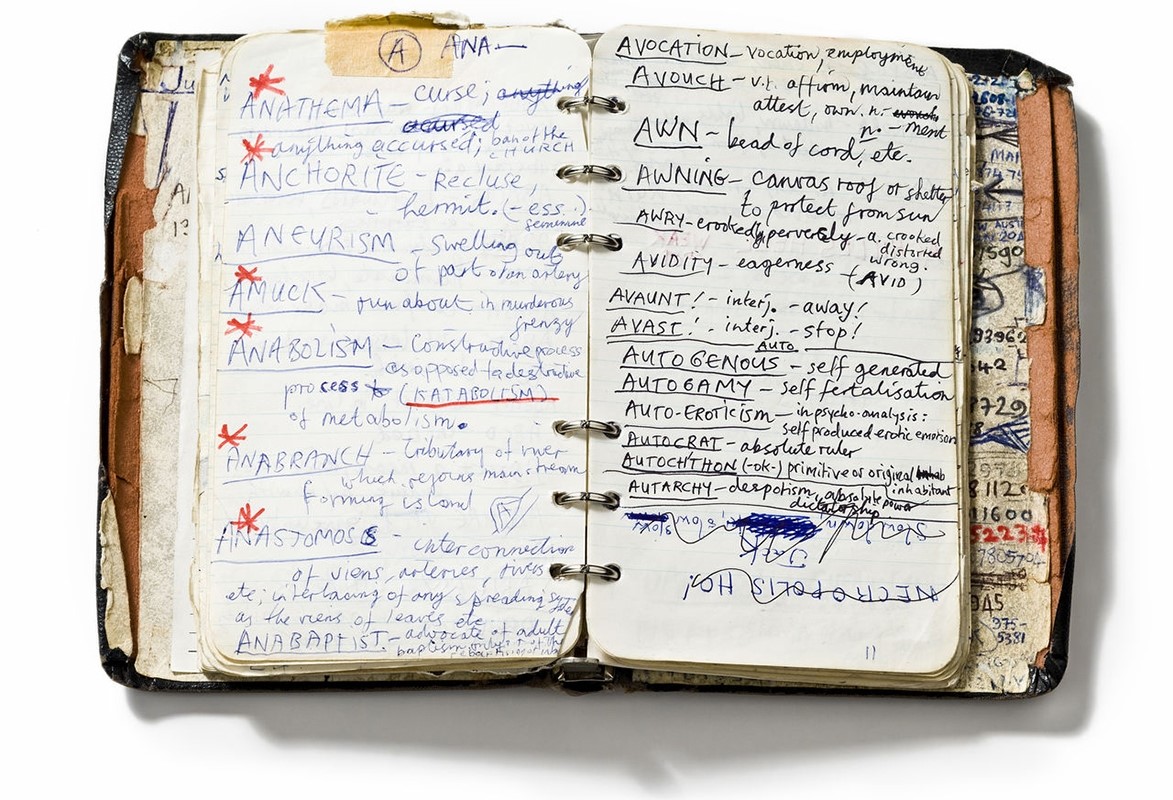 A ANA—
ANATHEMA – curse; anything
accursed
anything accursed; ban of the
CHURCH
ANCHORITE – Recluse,
- hermit. (-ess.)
feminine
ANEURISM – swelling out
of part of an artery
AMUCK – run about in murderous
frenzy
ANABOLISM – Constructive process
as opposed to destructive
process to (KATABOLISM)
of metabolism.
ANABRANCH – tributary of river
which rejoins main stream
forming island
A
ANASTOMOS – interconnection
of viens, arteries, rivers
etc; interlacing of any spreading
as the viens of leaves etc
ANABAPTIST. – advocate of adult
baptism only
AVOCATION – vocation, employment
AVOUCH – v.t. affirm, maintain
attest, own. n. –
n. – ment
AWN – bead of cord, etc.
AWNING – canvas roof or shelter
to protect from sun
AWRY – crookedly, perversely – a. crooked
distorted
wrong.
AVIDITY – eagerness (AVID)
AVAUNT! – interj. – away!
AVAST! – interj. – stop!
AUTO
AUTOGENOUS – self generated
AUTOGAMY – self fertalisation
AUTO-EROTICISM – in psycho-analysis:
self produced erotic emotion
AUTOCRAT – absolute ruler
AUTOCHTHON (-ok-) primitive or original
inhabitant
AUTARCHY – despotism, absolute power
dictatorship
Jack
NECROPOLIS HO!
11